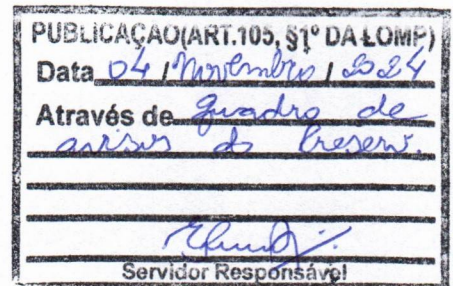 PUBLICAÇÃO(ART.105, §1º DA LOMP)
Data 04 / Novembro / 2024
Através de quadro de
avisos do Preserv.
Servidor Responsável